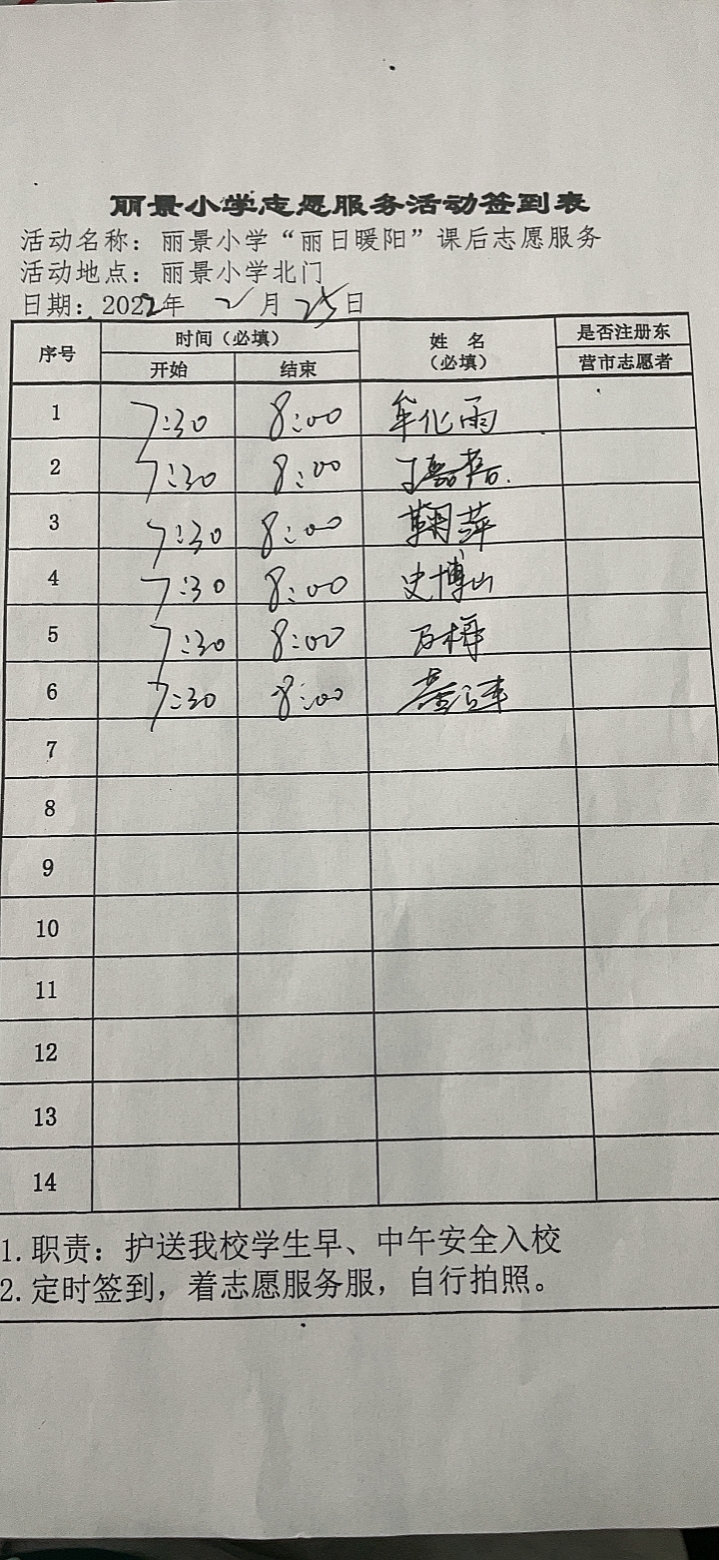 丽景小学志愿服务活动签到表
活动名称：丽景小学“丽日暖阳”课后志愿服务
活动地点：丽景小学北门
日期：2022年 2 月 25 日
序号 时间（必填） 姓 名（必填） 是否注册东营市志愿者
开始 结束
1 7:30 8:00 牟化雨
2 7:30 8:00
3 7:30 8:00 鞠萍
4 7:30 8:00 史博山
5 7:30 8:00
6 7:30 8:00
7
8
9
10
11
12
13
14
1.职责：护送我校学生早、中午安全入校
2.定时签到，着志愿服务服，自行拍照。